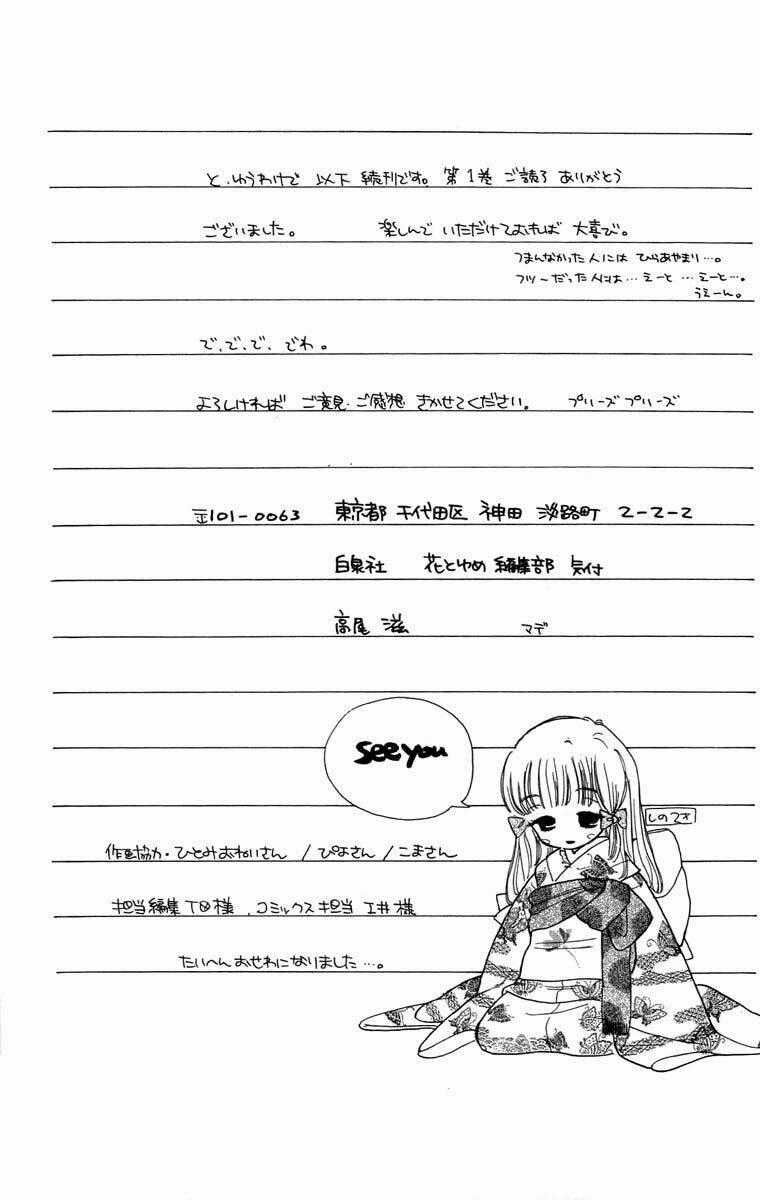 と、ゆうわけで 以下 続刊です。 第1巻 ご読了 ありがとう
ございました。 楽しんで いただけておれば 大喜び。
つまんなかった人には ひらあやまり…。
フツーだった人には… えーと … えーと…。
うえーん。
で、で、で、でわ。
よろしければ ご意見・ご感想 きかせてください。 プリーズ プリーズ
〒101-0063 東京都 千代田区 神田 淡路町 2-2-2
白泉社 花とゆめ 編集部 気付
高尾 滋 マデ
see you
しのてさ
作画協力・ひとみおねいさん / ぴよさん / こまさん
担当編集 T 様 、コミックス担当 工井 様
たいへん おせわになりました…。